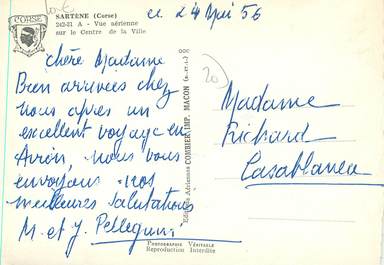 CORSE
SARTÈNE (Corse)
242-21 A - Vue aérienne
sur le Centre de la Ville
ce 24 Mai 56
20
chère Madame
Bien arrivées chez
nous après un
excellent voyage en
Avion, nous vous
envoyons nos
meilleures salutations
M. et J. Pellegrini
Madame
Richard
Casablanca
COMBIER IMP. MACON
PHOTOGRAPHIE VÉRITABLE
Reproduction Interdite